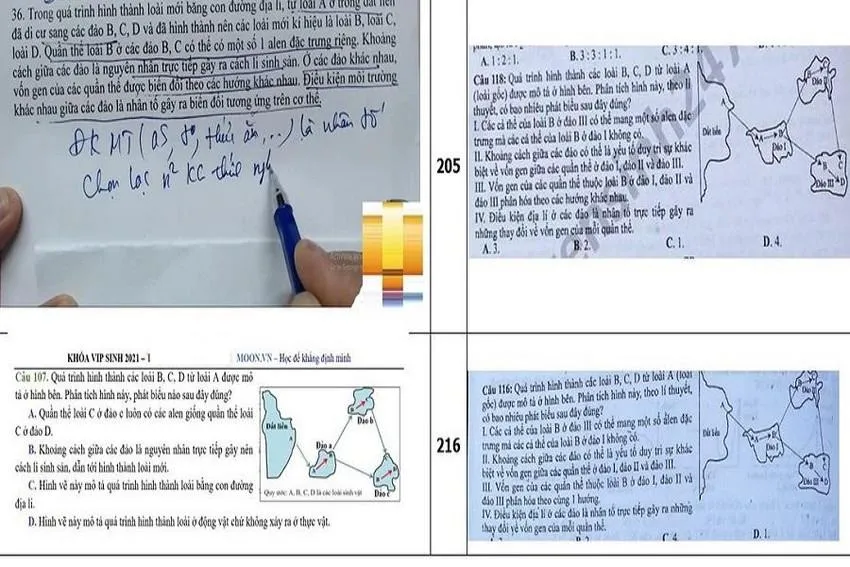 36. Trong quá trình hình thành loài mới bằng con đường địa lí, từ loài A ở trong đất liền
đã di cư sang các đảo B, C, D và đã hình thành nên các loài mới kí hiệu là loài B, loài C,
loài D. Quần thể loài B ở các đảo B, C có thể có một số 1 alen đặc trưng riêng. Khoảng
cách giữa các đảo là nguyên nhân trực tiếp gây ra cách li sinh sản. Ở các đảo khác nhau,
vốn gen của các quần thể được biến đổi theo các hướng khác nhau. Điều kiện môi trường
khác nhau giữa các đảo là nhân tố gây ra biến đổi tương ứng trên cơ thể.
ĐK MT (as, tº, thức ăn, ...) là nhân tố
Chọn lọc n² KG thích ngh
205
A. 1 : 2 : 1. B. 3 : 3 : 1 : 1. C. 3 : 4 : 1.
Câu 118: Quá trình hình thành các loài B, C, D từ loài A
(loài gốc) được mô tả ở hình bên. Phân tích hình này, theo lí
thuyết, có bao nhiêu phát biểu sau đây đúng?
I. Các cá thể của loài B ở đảo III có thể mang một số alen đặc
trưng mà các cá thể của loài B ở đảo I không có.
II. Khoảng cách giữa các đảo có thể là yếu tố duy trì sự khác
biệt về vốn gen giữa các quần thể ở đảo I, đảo II và đảo III.
III. Vốn gen của các quần thể thuộc loài B ở đảo I, đảo II và
đảo III phân hóa theo các hướng khác nhau.
IV. Điều kiện địa lí ở các đảo là nhân tố trực tiếp gây ra
những thay đổi về vốn gen của mỗi quần thể.
A. 3. B. 2. C. 1. D. 4.
Đất liền
A
A B
Đảo I
Đảo II
Đảo III
D
KHÓA VIP SINH 2021 – I MOON.VN – Học để khẳng định mình
Câu 107. Quá trình hình thành các loài B, C, D từ loài A được mô
tả ở hình bên. Phân tích hình này, phát biểu nào sau đây đúng?
A. Quần thể loài C ở đảo c luôn có các alen giống quần thể loài
C ở đảo D.
B. Khoảng cách giữa các đảo là nguyên nhân trực tiếp gây nên
cách li sinh sản, dẫn tới hình thành loài mới.
C. Hình vẽ này mô tả quá trình hình thành loài bằng con đường
địa lí.
D. Hình vẽ này mô tả quá trình hình thành loài ở động vật chứ không xảy ra ở thực vật.
Đất liền
A
Đảo a
Đảo b
Đảo c
Quy ước: A, B, C, D là các loài sinh vật
216
Câu 116: Quá trình hình thành các loài B, C, D từ loài A (loài
gốc) được mô tả ở hình bên. Phân tích hình này, theo lí thuyết,
có bao nhiêu phát biểu sau đây đúng?
I. Các cá thể của loài B ở đảo III có thể mang một số alen đặc
trưng mà các cá thể của loài B ở đảo I không có.
II. Khoảng cách giữa các đảo có thể duy trì sự khác
biệt về vốn gen giữa các quần thể ở đảo I, đảo II và đảo III.
III. Vốn gen của các quần thể thuộc loài B ở đảo I, đảo II và
đảo III phân hóa theo cùng 1 hướng.
IV. Điều kiện địa lí ở các đảo là nhân tố trực tiếp gây ra những
thay đổi về vốn gen của mỗi quần thể.
C. 4. D. 1.
Đất liền
A
A B
Đảo I
Đảo II
Đảo III
D